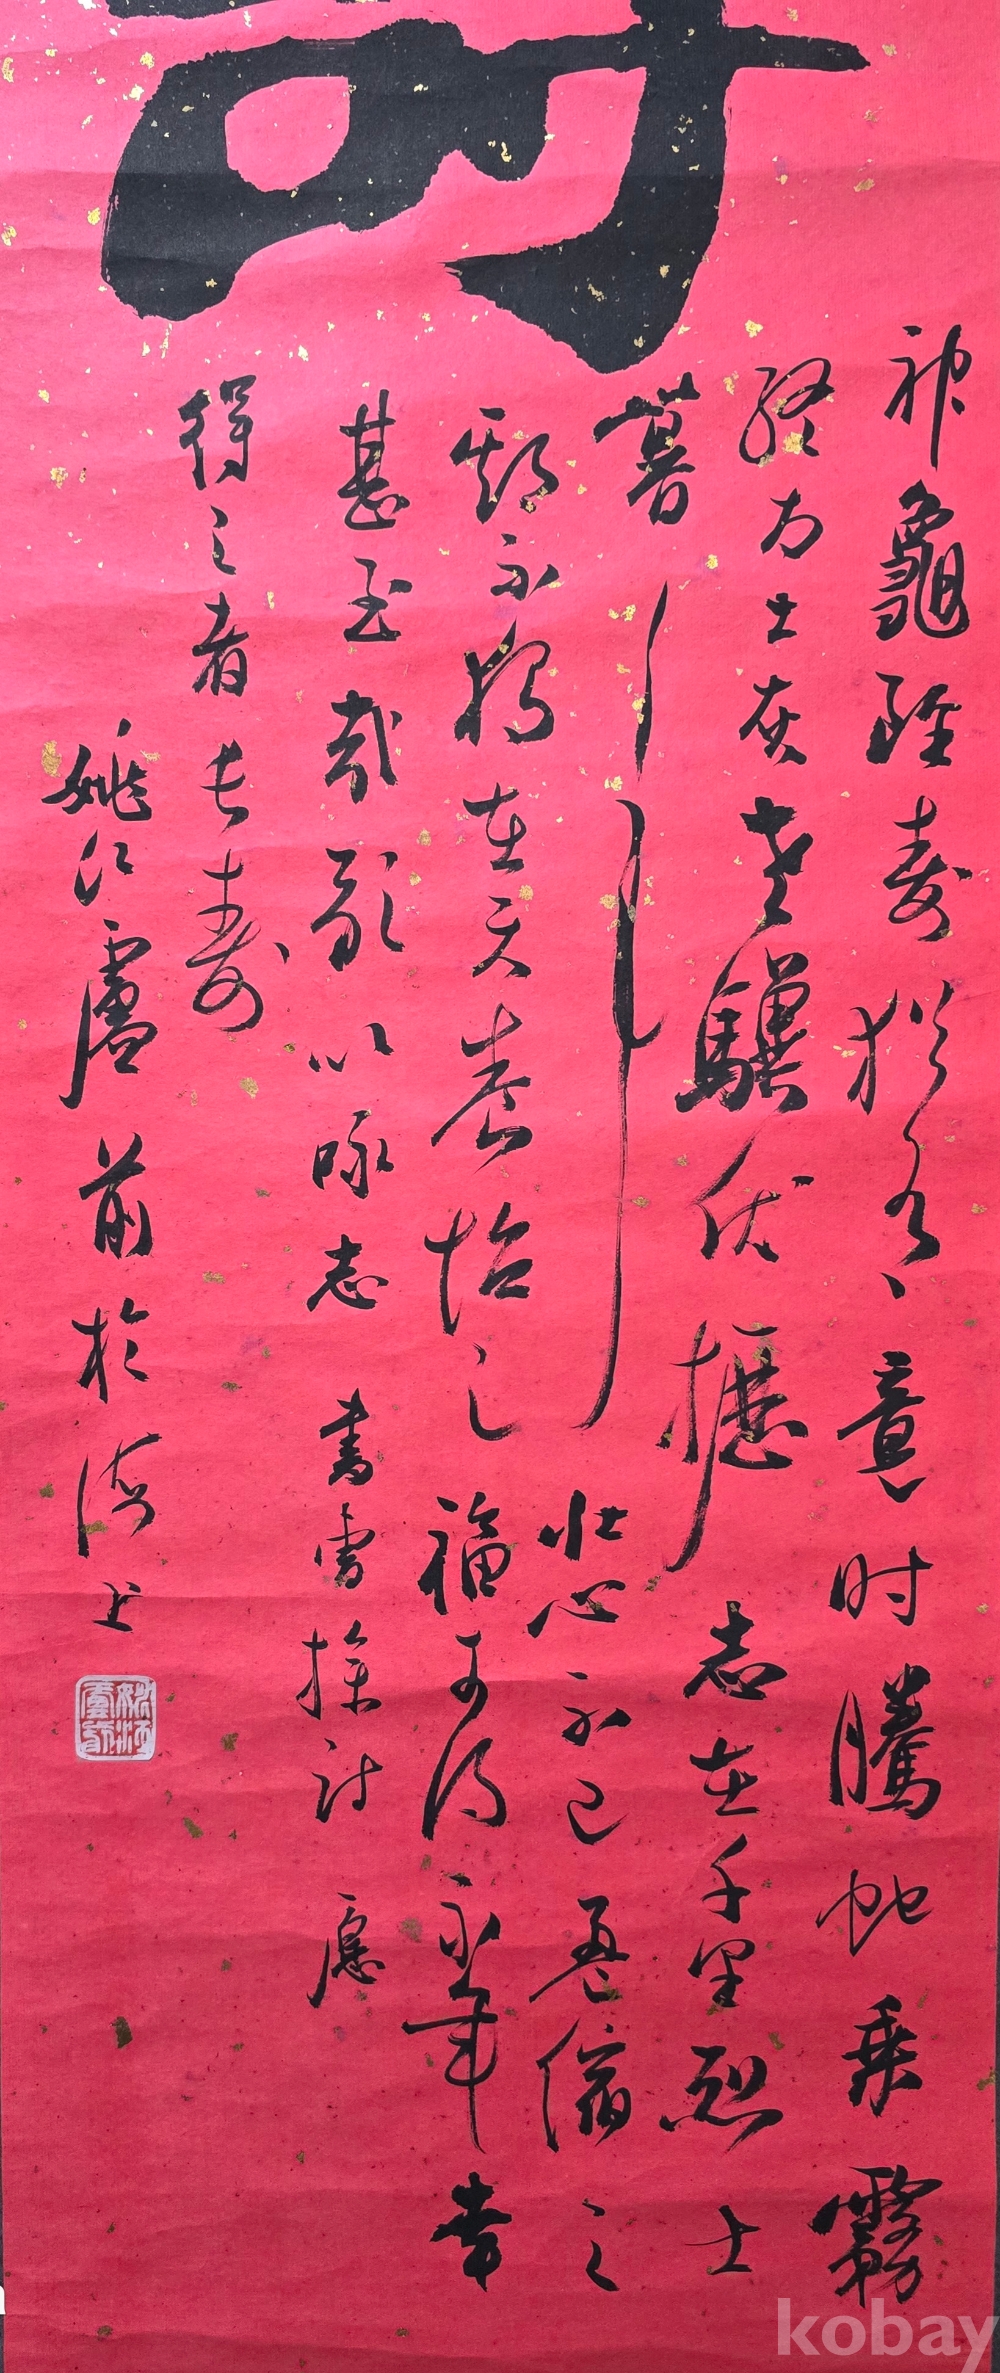 神龜雖壽猶有竟时騰蛇乘霧
終为土灰老驥伏櫪志在千里烈士
暮年壯心不已盈縮之
期不獨在天養怡之福可得永年幸
甚至哉歌以咏志書曹操詩愿
得之者長壽
姚江盧前於海上
kobay